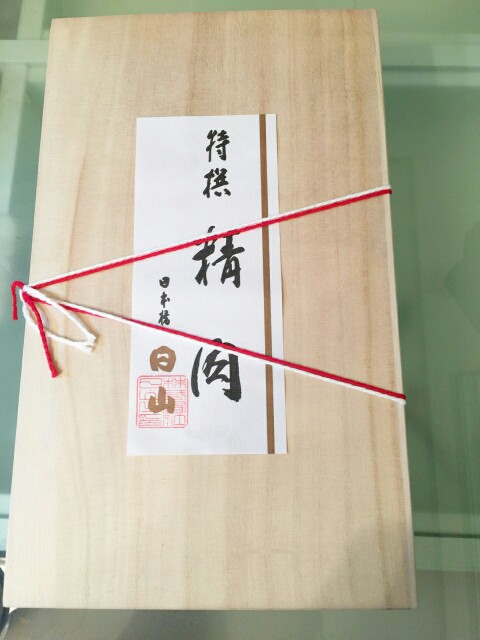 特撰
精肉
日本橋
日山